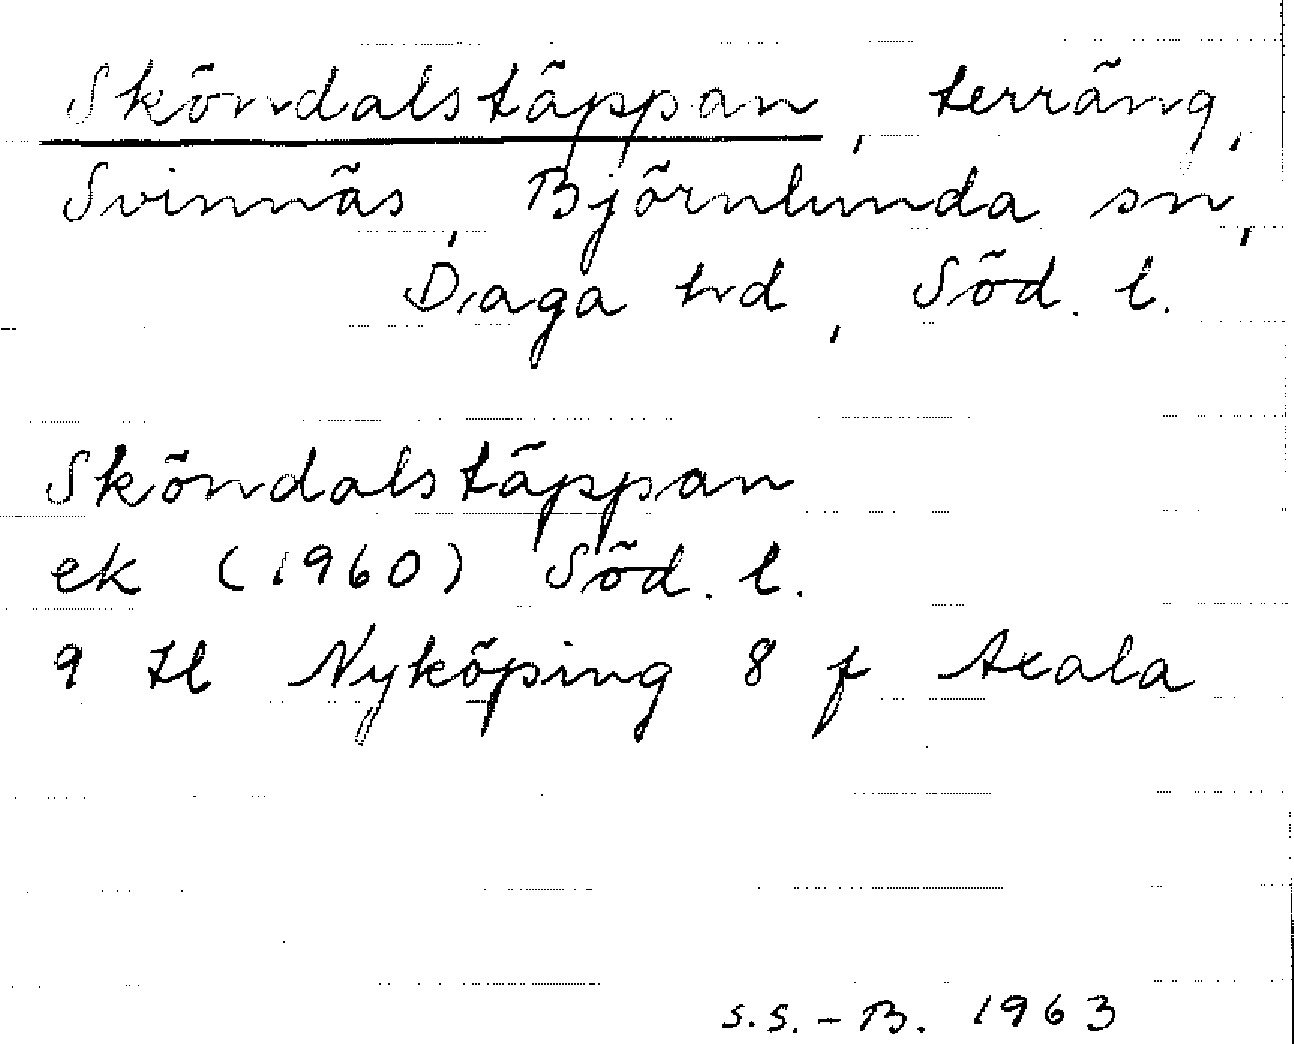 Sköndalstäppan, terräng,
Svinnäs, Björnlunda sn,
Daga hd, Söd. l.
Sköndalstäppan
ek (1960) Söd. l.
9 H Nyköping 8 f Axala
S.S.-B. 1963